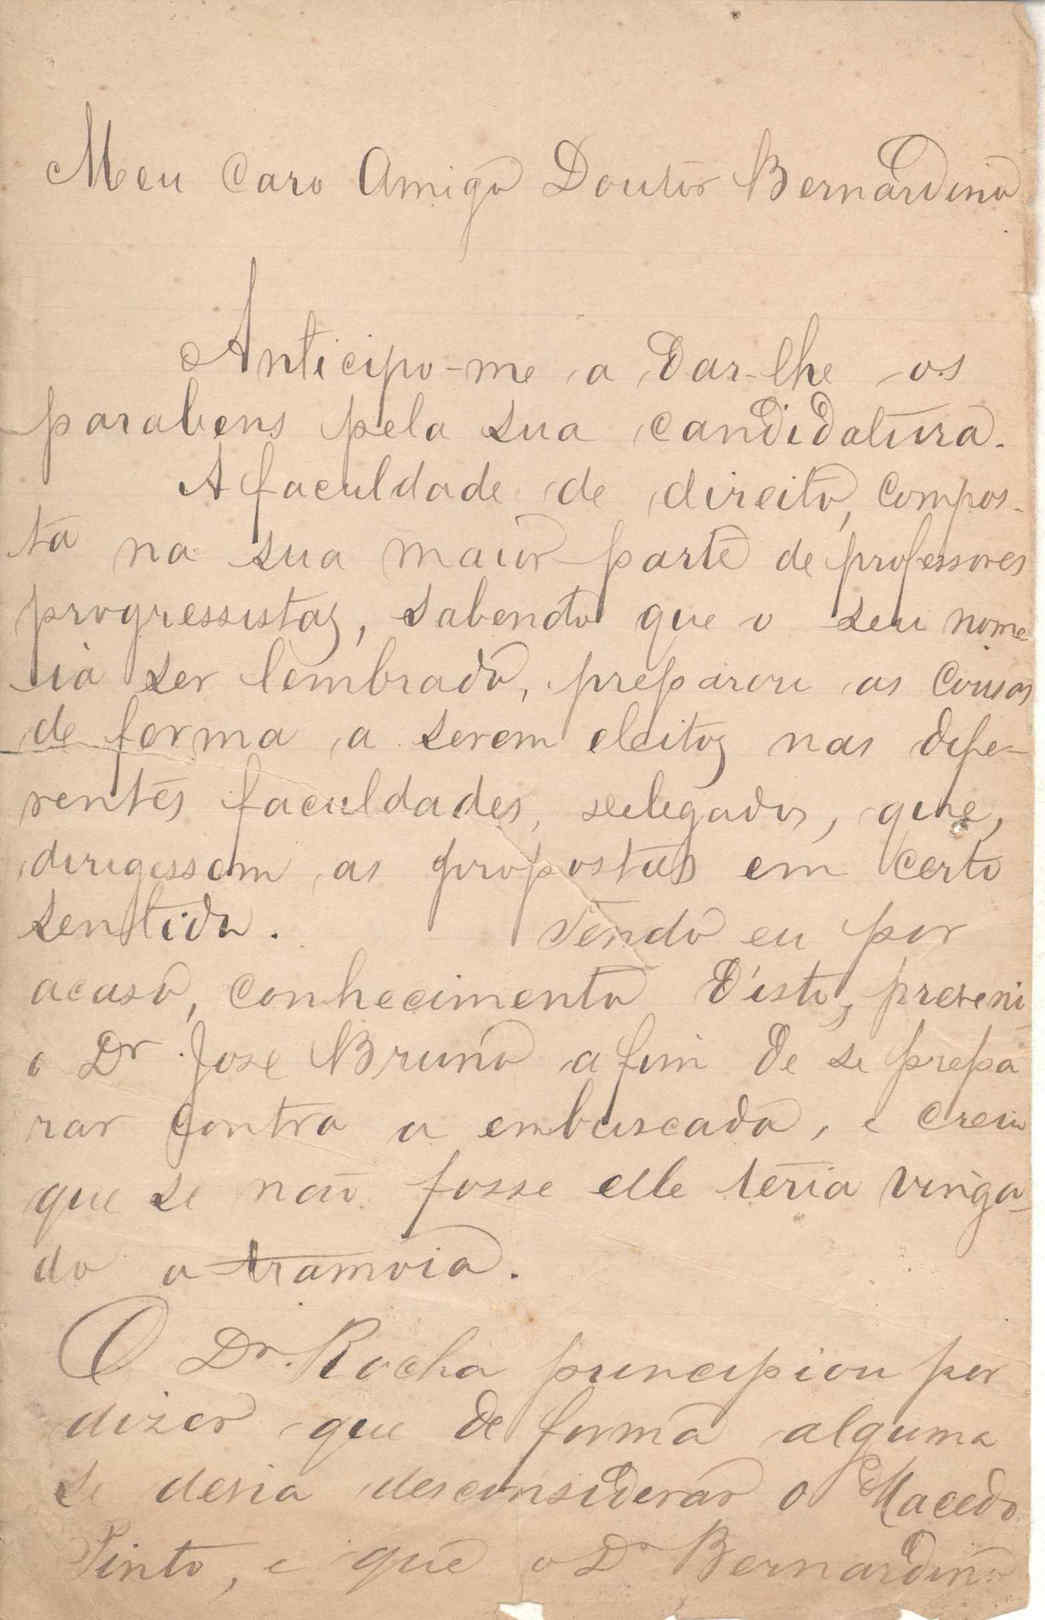 Meu Caro Amigo Doutor Bernardino
Anticipo-me a dar-lhe os
parabens pela sua candidatura.
A faculdade de direito, compos-
ta na sua maior parte de professores
progressistas, sabendo que o seu nome
ia ser lembrado, preparou as cousas
de forma a serem eleitos nas diffe-
rentes faculdades, delegados, que,
dirigissem as propostas em certo
sentido. Tendo eu por
acaso, conhecimento d'isto, preveni
o Dr José Bruno afim de se prepa
rar contra a embuscada, e creio
que se não fosse elle teria vinga-
do a tramoia.
O Dr. Rocha principiou por
dizer que de forma alguma
se devia desconsiderar o Macedo
Pinto, e que o Dr Bernardino